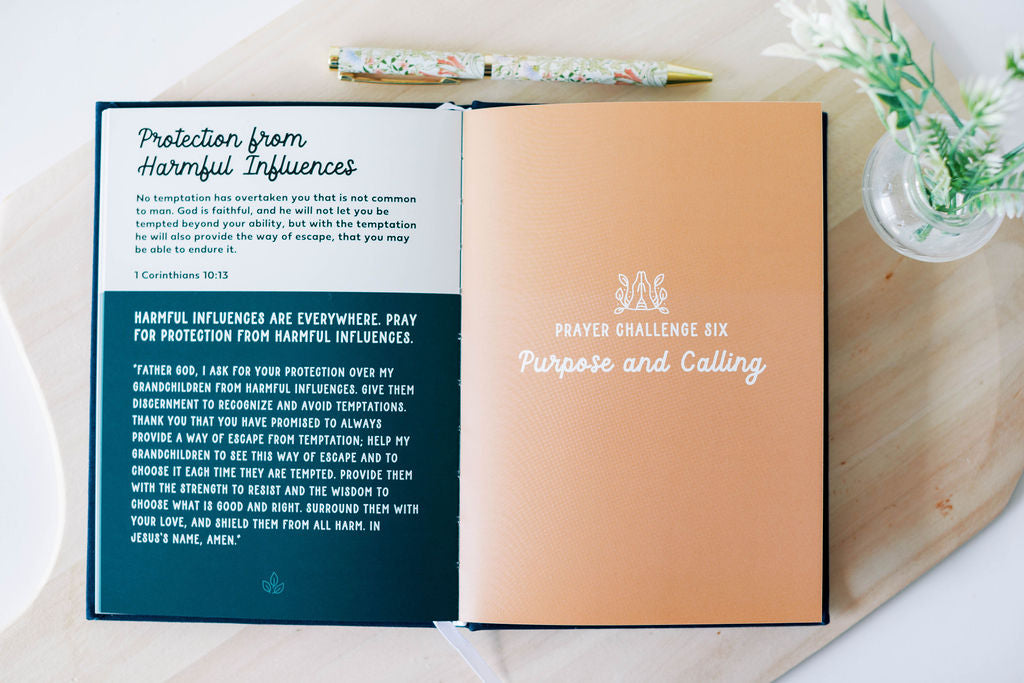 Protection from
Harmful Influences
No temptation has overtaken you that is not common
to man. God is faithful, and he will not let you be
tempted beyond your ability, but with the temptation
he will also provide the way of escape, that you may
be able to endure it.
1 Corinthians 10:13
HARMFUL INFLUENCES ARE EVERYWHERE. PRAY
FOR PROTECTION FROM HARMFUL INFLUENCES.
"FATHER GOD, I ASK FOR YOUR PROTECTION OVER MY
GRANDCHILDREN FROM HARMFUL INFLUENCES. GIVE THEM
DISCERNMENT TO RECOGNIZE AND AVOID TEMPTATIONS.
THANK YOU THAT YOU HAVE PROMISED TO ALWAYS
PROVIDE A WAY OF ESCAPE FROM TEMPTATION; HELP MY
GRANDCHILDREN TO SEE THIS WAY OF ESCAPE AND TO
CHOOSE IT EACH TIME THEY ARE TEMPTED. PROVIDE THEM
WITH THE STRENGTH TO RESIST AND THE WISDOM TO
CHOOSE WHAT IS GOOD AND RIGHT. SURROUND THEM WITH
YOUR LOVE, AND SHIELD THEM FROM ALL HARM. IN
JESUS'S NAME, AMEN."
PRAYER CHALLENGE SIX
Purpose and Calling